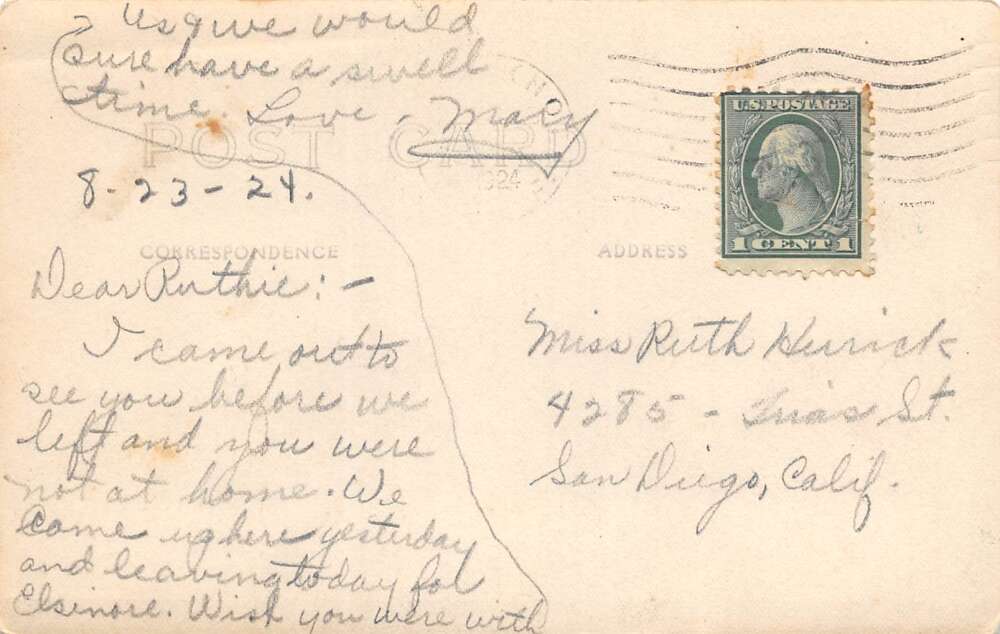 us & we would
sure have a swell
time. Love, Mary
POST CARD
1924
8-23-24.
CORRESPONDENCE
ADDRESS
U.S. POSTAGE
1 CENT 1
Dear Ruthie:-
I came out to
see you before we
left and you were
not at home. We
came up here yesterday
and leaving today for
Elsinore. Wish you were with
Miss Ruth Herrick
4285 - Trias St.
San Diego, Calif.